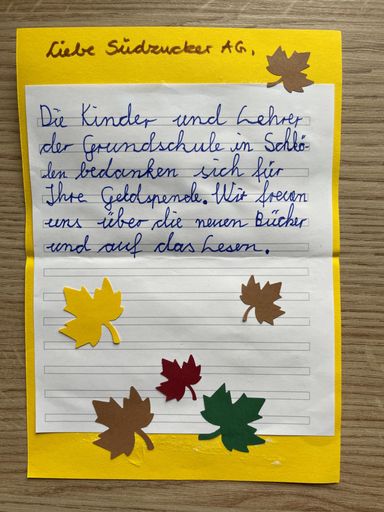 Liebe Südzucker AG,
Die Kinder und Lehrer
der Grundschule in Schkö-
len bedanken sich für
Ihre Geldspende. Wir freuen
uns über die neuen Bücher
und auf das Lesen.